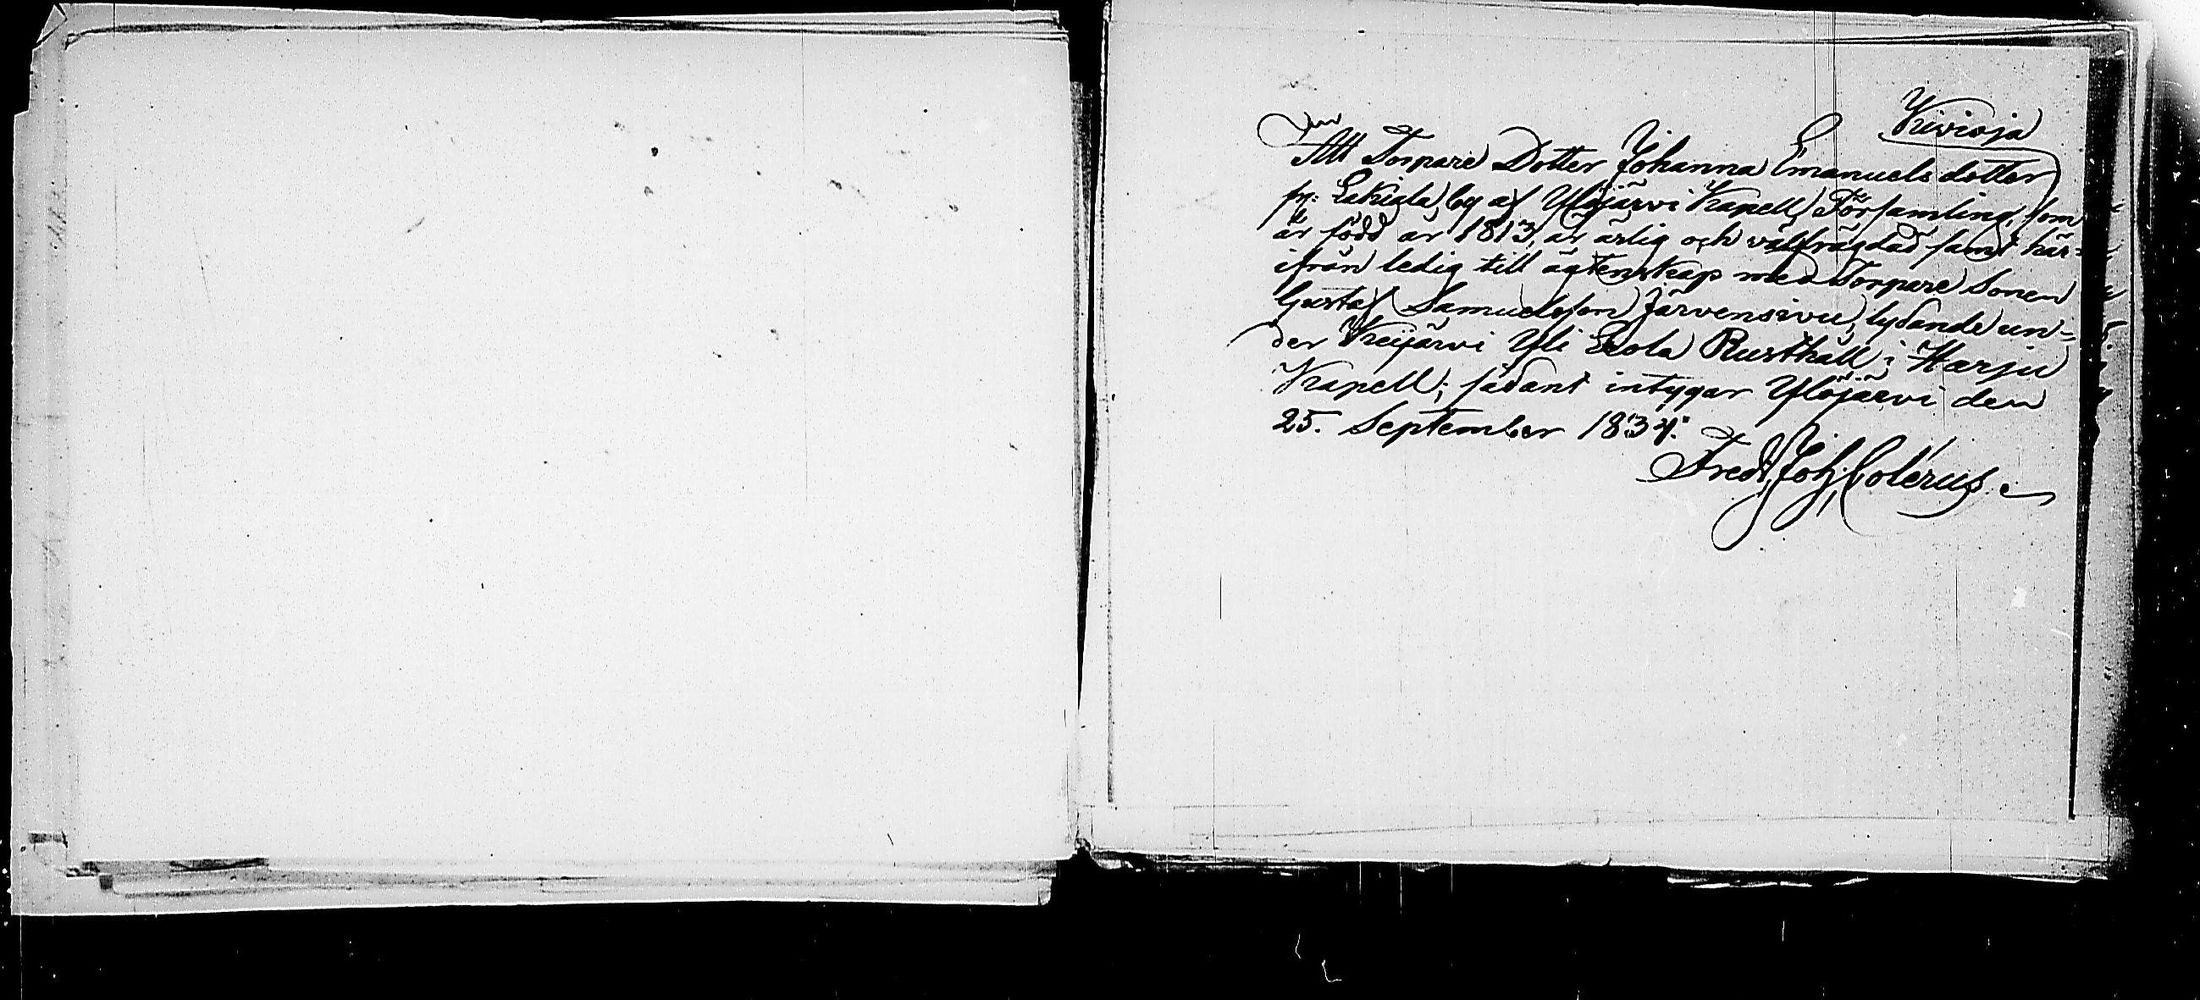 Kivioja
Att Torpare Dotter Johanna Emanuelsdotter
fr: Lakiala by af Ylöjärvi Kapell Församling, som
är född år 1813, är ärlig och välfrägdad samt här-
ifrån ledig till ägtenskap med Torpare Sonen
Gustaf Samuelsson Järvensivu, lydande un-
der Keijärvi Yli Eola Rusthåll i Harju
Kapell; sådant intygar Ylöjärvi den
25. September 1834.
Fredr. Joh. Colérus.